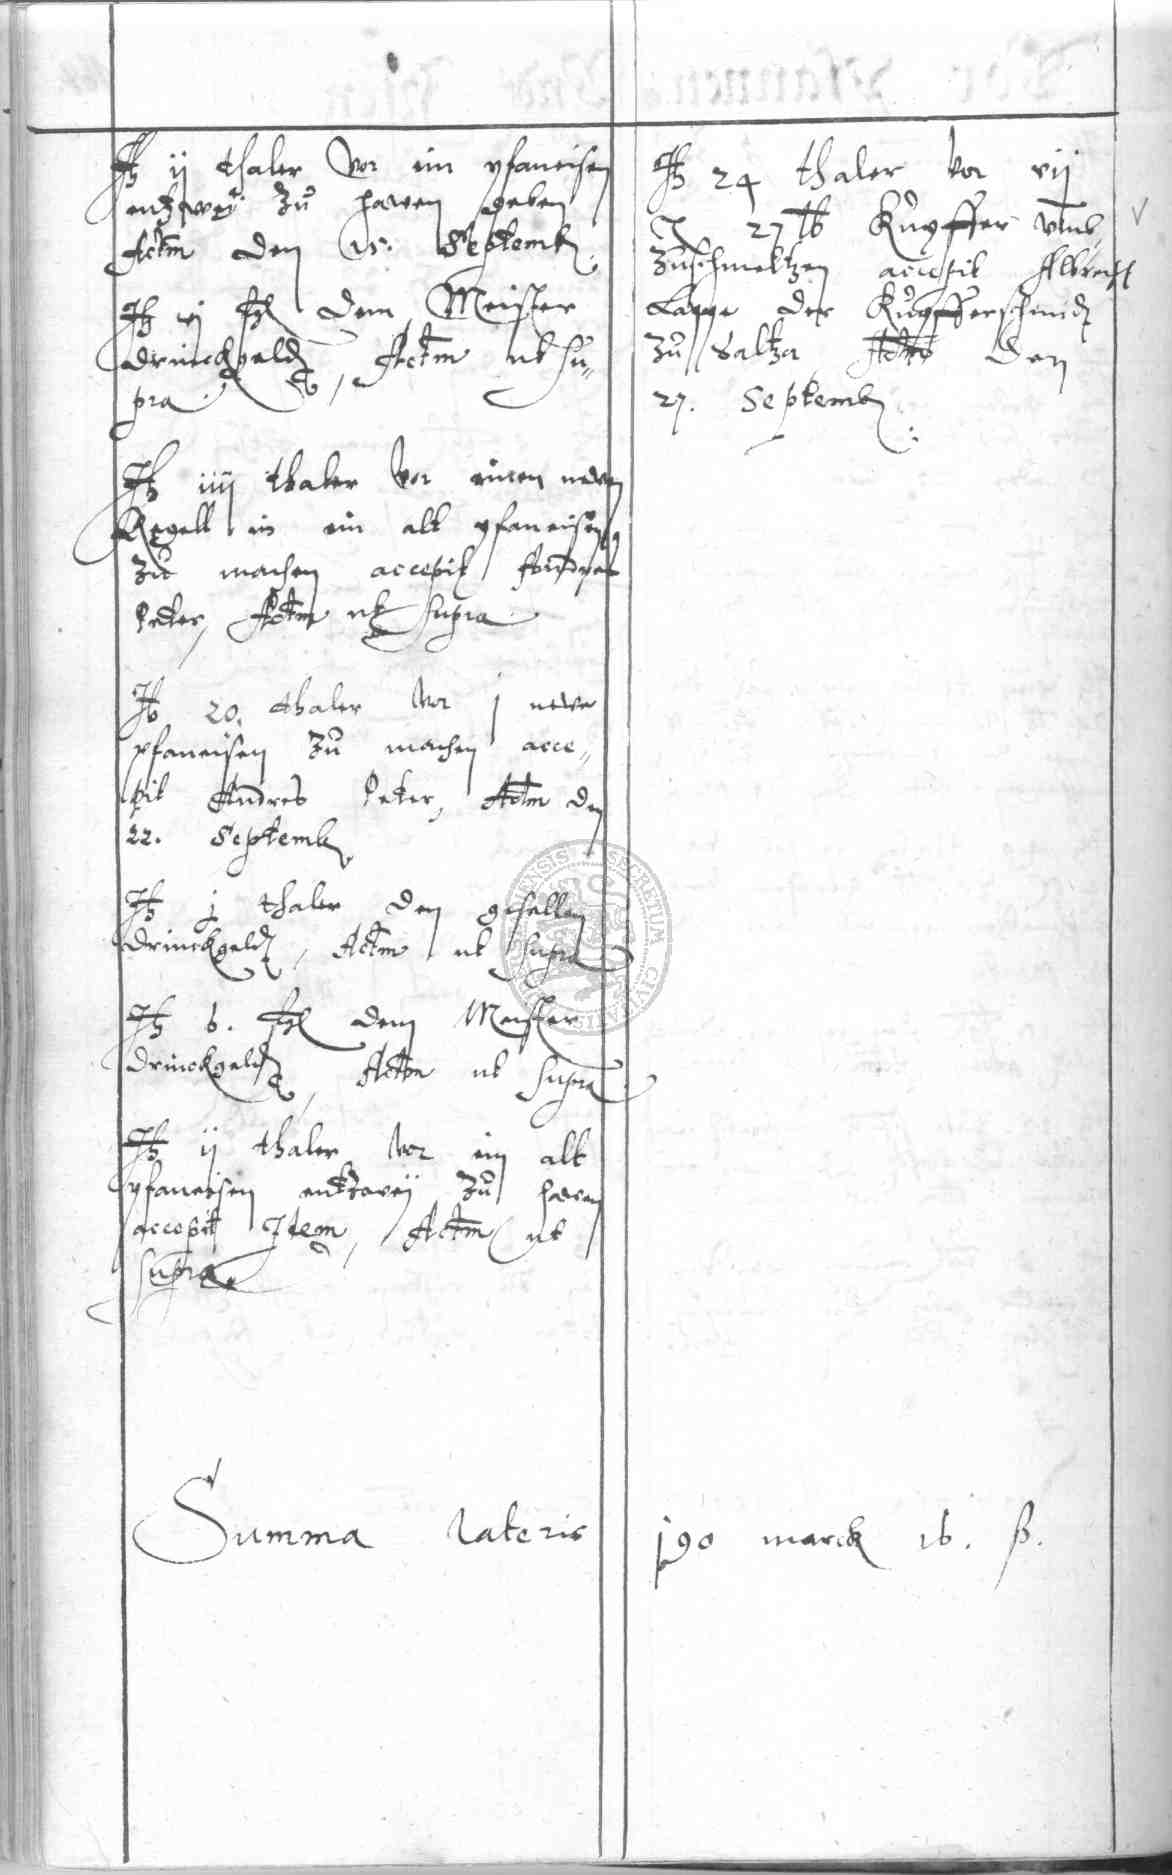 It ij thaler vor ein pfaneisen
entzwey zu hawen geben
Actm den 15. Septemb
It vj ßl dem Meister
drinckgeld, Actm ut su„
pra
It iiij thaler vor einen newen
Regell in ein alt pfaneisen
zu machen accepit Andres
Peker, Actm ut supra
It 20 thaler vor j newe
pfaneisen zu machen acce„
pit Andres Peker, Actm den
22. Septemb
It j thaler den gesellen
drinckgeld, Actm ut supra
It 6. ßl dem Meister
drinckgeld, Actm ut supra
It ij thaler vor ein alt
pfaneisen entzweij zu hawen
accepit Idem, Actm ut
supra
It 24 thaler vor vij
C 27 lb Kupffer vmb
zuschmeltzen accepit Albrecht
Lappe der Kupfferschmid
zu Saltza Actm den
27. Septemb
SECRETUM CIVITATIS
Summa Lateris 190 marck 16. ß.